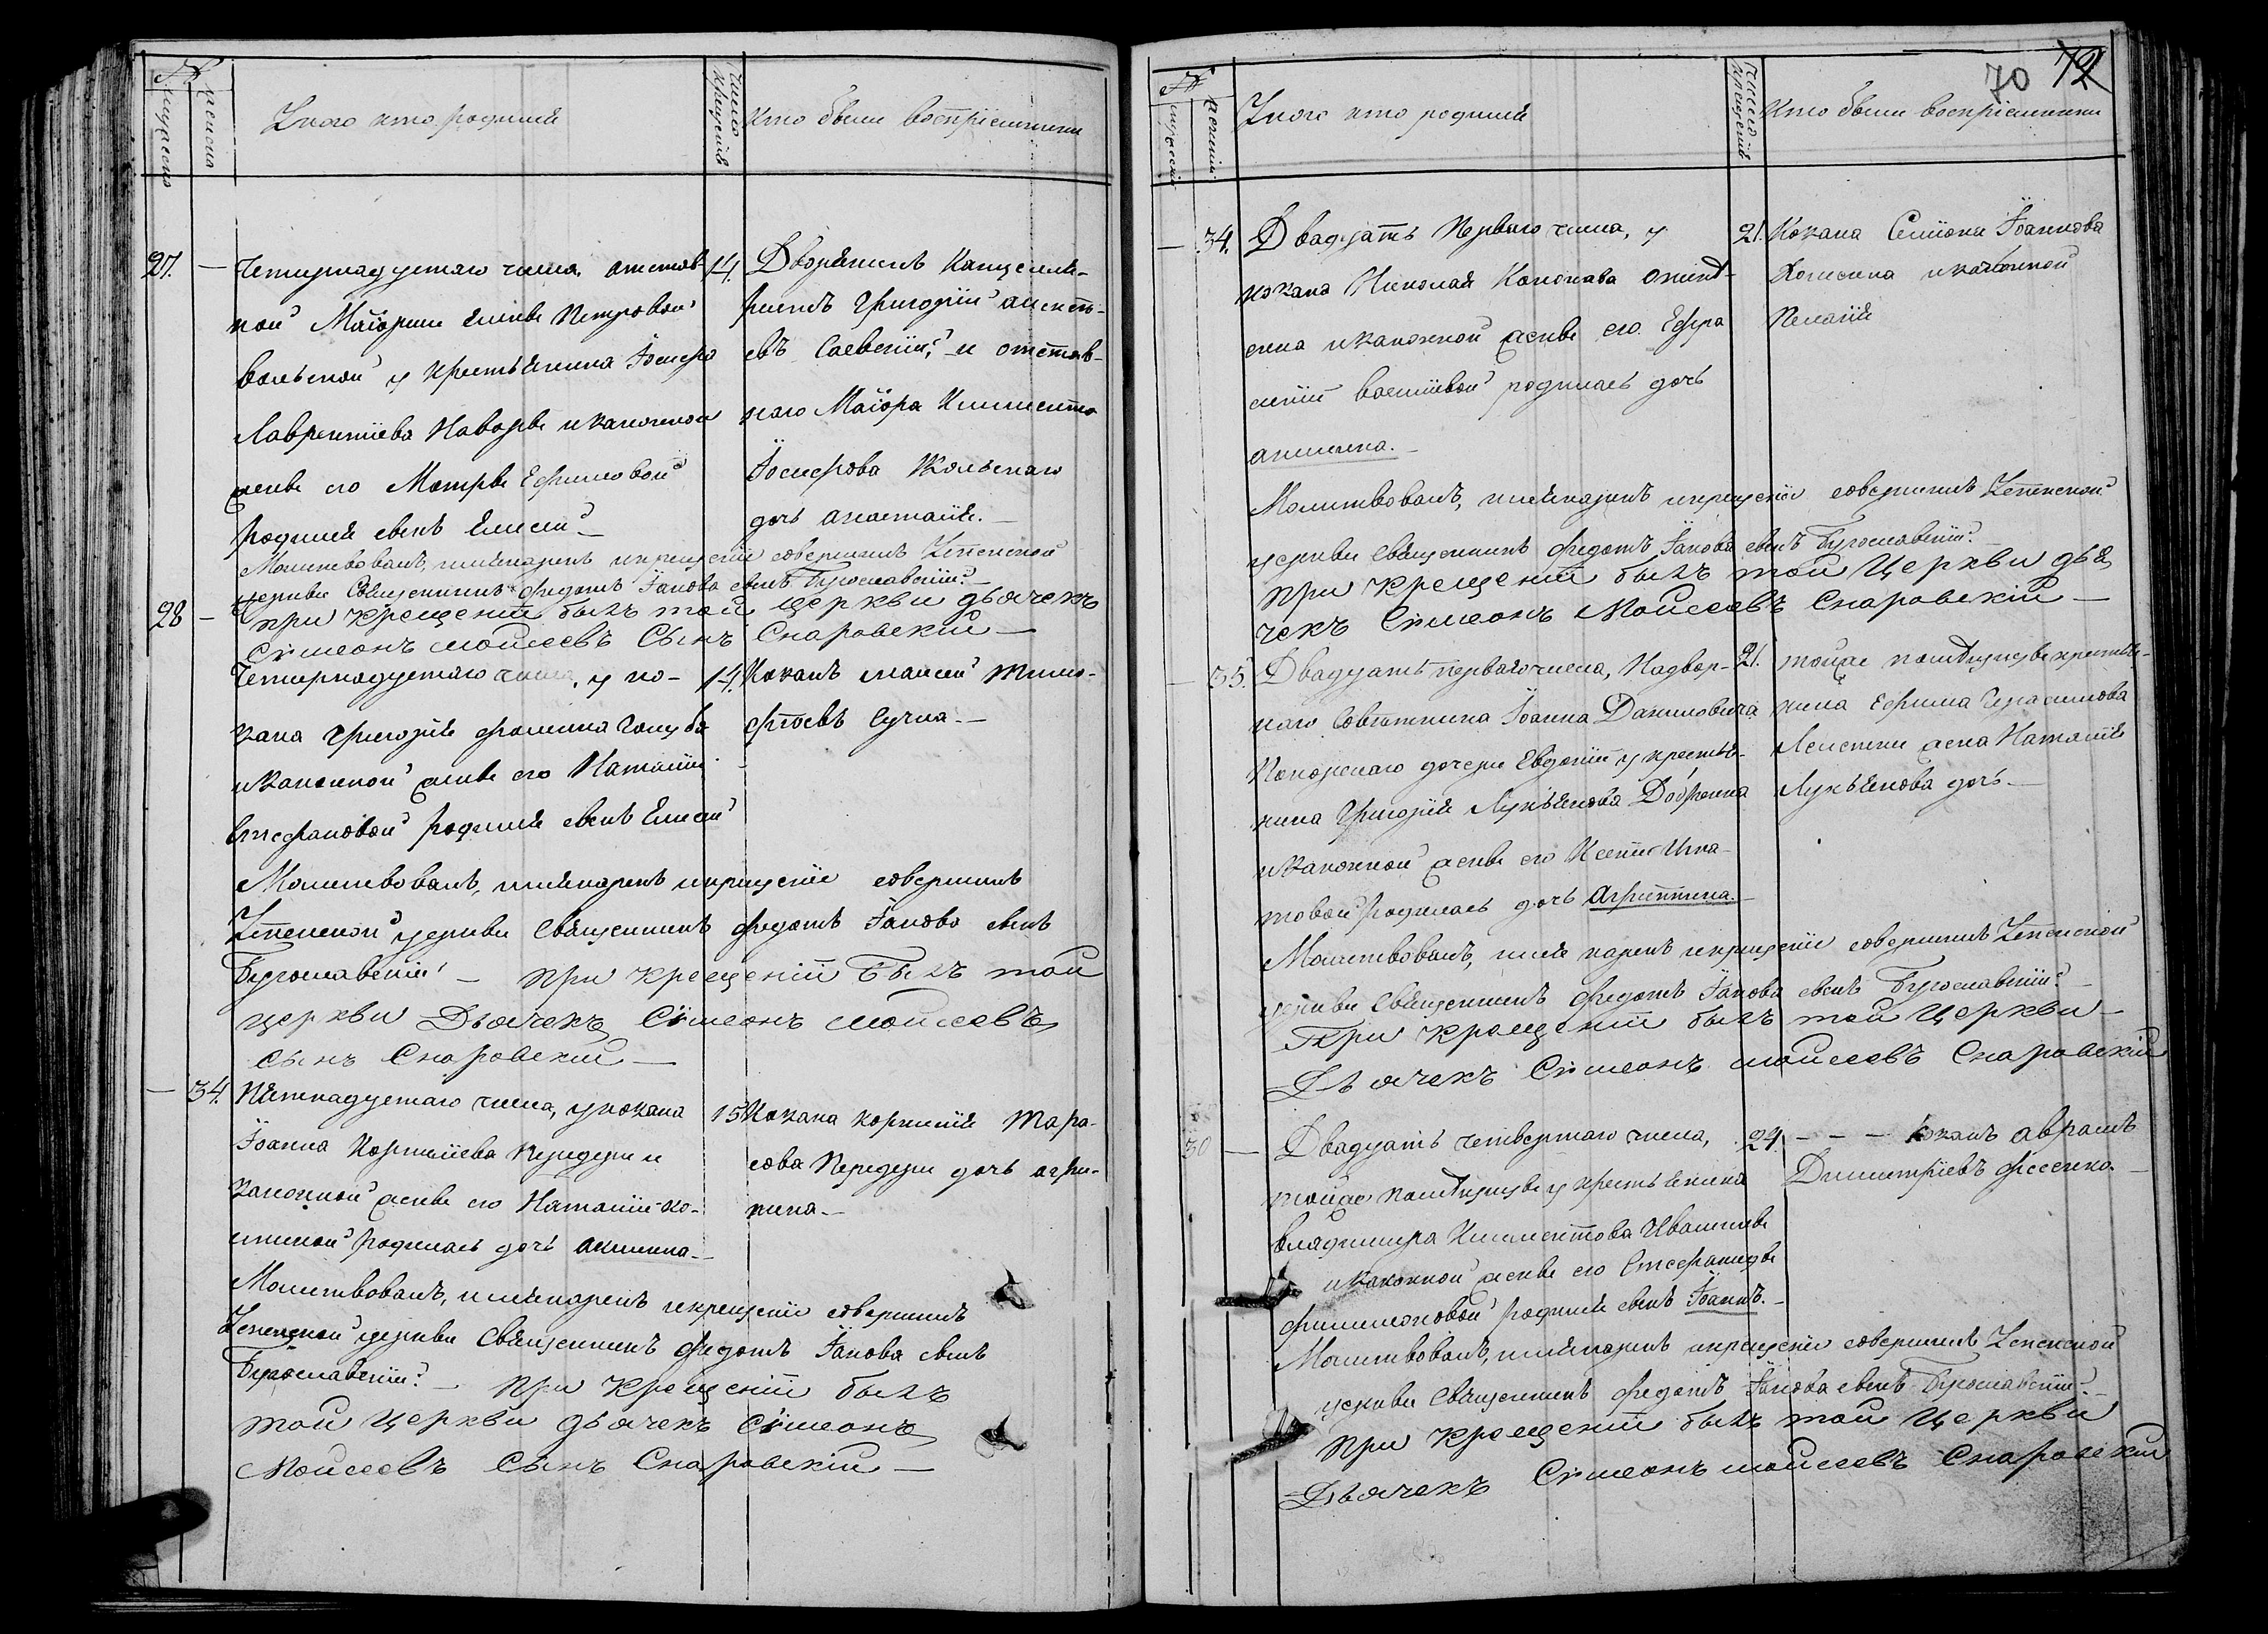 №
мужеска
женска
У кого кто родился
Число крещенія
Кто были воспріемники
27. — Четырнадцатаго числа, отстав-
ной Маіорши Еленѣ Петровой
Вольской у крестьянина Іосифа
Лаврентіева и законной
женѣ его Мотрѣ Ефимовой
родился сынъ Елисей
14. Дворянинъ Канцеля-
ристъ Григорій Алексѣ-
евъ и отстав-
наго Маіора Климента
Іосифова Вольскаго
дочь Анастасія. —
Молитвовалъ, имянарекъ и крещеніе совершилъ Успенской
церкви Священникъ Федотъ Іаковъ сынъ Богославскій —
при крещеніи былъ той церкви дьячекъ
Сѵмеонъ Мойсеевъ Сынъ Снаровскій —
28 — Четырнадцатаго числа, у ко-
зака Григорія Фомина Голуба
и законной женѣ его Наталіи
Стефановой родился сынъ Елисей
14. Козакъ Моисей Тимо-
фѣевъ Сучка. —
Молитвовалъ, имянарекъ и крещеніе совершилъ
Успенской церкви Священникъ Федотъ Іаковъ сынъ
Богославскій — при крещеніи былъ той
церкви Дьячекъ Сѵмеонъ Мойсеевъ
сынъ Снаровскій —
— 34. Пятнадцатаго числа, у козака
Іоанна Корнилієва Передери и
законной женѣ его Наталіи Ко-
родилась дочь Акилина —
15 Козака Корнилія Тара-
сова Передери дочь Агри-
пина —
Молитвовалъ, имянарекъ и крещеніе совершилъ
Успенской церкви Священникъ Федотъ Іаковъ сынъ
Богославскій — при крещеніи былъ
той церкви дьячекъ Сѵмеонъ
Мойсеевъ Сынъ Снаровскій —
70 72
№
мужескій
женскій
У кого кто родился
Число крещенія
Кто были воспріемники
— 34. Двадцать Перваго числа, у
козака Николая Кононова
и законной женѣ его Ефро
синіи родилась дочь
Акилина. —
21. Козака Симіона Іоаннова
и законной
Пелагія
Молитвовалъ, имянарекъ и крещеніе совершилъ Успенской
церкви Священникъ Федотъ Іаковъ сынъ Богославскій —
при крещеніи былъ той Церкви дья
чекъ Сѵмеонъ Мойсеевъ Снаровскій —
— 35. Двадцать перваго числа, Надвор-
наго Совѣтника Іоанна Даниловича
дочери Евдокіи у крестья-
нина Григорія Лукьянова
и законной женѣ его Ксеніи Игна-
товой родилась дочь Агриппина. —
21. тойже помѣщицѣ крестья-
нина Ефима Герасимова
жена Наталія
Лукьянова дочь —
Молитвовалъ, имя нарекъ и крещеніе совершилъ Успенской
церкви Священникъ Федотъ Іаковъ сынъ Богославскій —
При крещеніи былъ той Церкви —
Дьячекъ Сѵмеонъ Мойсеевъ Снаровскій
30 — Двадцать четвертаго числа,
тойже помѣщицѣ у крестьянина
Владимира Климентова
и законной женѣ его Стефанидѣ
Филимоновой родился сынъ Іоаннъ. —
24. — — — Козакъ Аврамъ
Димитріевъ Фесенко. —
Молитвовалъ, имянарекъ и крещеніе совершилъ Успенской
церкви Священникъ Федотъ Іаковъ сынъ Богославскій —
при крещеніи былъ той Церкви
Дьячекъ Сѵмеонъ Мойсеевъ Снаровскій